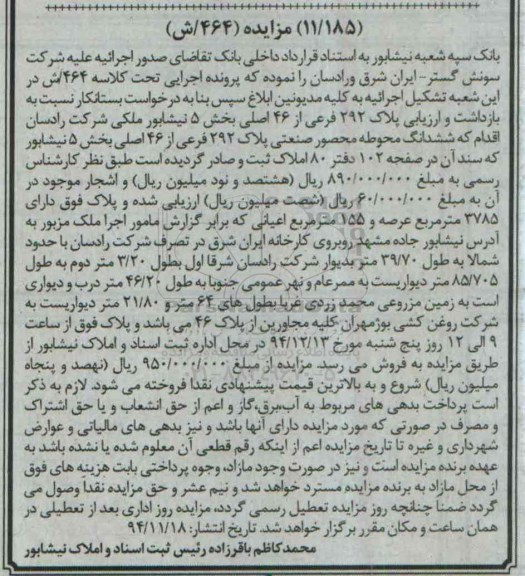 (۱۱/۱۸۵) مزایده (۴۶۴/ش)
بانک سپه شعبه نیشابور به استناد قرارداد داخلی بانک تقاضای صدور اجرائیه علیه شرکت
سونش گستر- ایران شرق ورادسان را نموده که پرونده اجرایی تحت کلاسه ۴۶۴/ش در
این شعبه تشکیل اجرائیه به کلیه مدیونین ابلاغ سپس بنا به درخواست بستانکار نسبت به
بازداشت و ارزیابی پلاک ۲۹۲ فرعی از ۴۶ اصلی بخش ۵ نیشابور ملکی شرکت رادسان
اقدام که ششدانگ محوطه محصور صنعتی پلاک ۲۹۲ فرعی از ۴۶ اصلی بخش ۵ نیشابور
که سند آن در صفحه ۱۰۲ دفتر ۸۰ املاک ثبت و صادر گردیده است طبق نظر کارشناس
رسمی به مبلغ ۸۹۰/۰۰۰/۰۰۰ ریال (هشتصد و نود میلیون ریال) و اشجار موجود در
آن به مبلغ ۶۰/۰۰۰/۰۰۰ ریال (شصت میلیون ریال) ارزیابی شده و پلاک فوق دارای
۳۷۸۵ مترمربع عرصه و ۵۵ مترمربع اعیانی که برابر گزارش مامور اجرا ملک مزبور به
آدرس نیشابور جاده مشهد روبروی کارخانه ایران شرق در تصرف شرکت رادسان با حدود
شمالا به طول ۳۹/۷۰ متر بدیوار شرکت رادسان شرقا اول بطول ۳/۲۰ متر دوم به طول
۸۵/۷۰۵ متر دیواریست به ممرعام و نهر عمومی جنوبا به طول ۴۶/۲۰ متر درب و دیواری
است به زمین مزروعی محمد زردی غربا بطول های ۶۴ متر و ۲۱/۸۰ متر دیواریست به
شرکت روغن کشی بوژمهران کلیه مجاورین از پلاک ۴۶ می باشد و پلاک فوق از ساعت
۹ الی ۱۲ روز پنج شنبه مورخ ۹۴/۱۲/۱۳ در محل اداره ثبت اسناد و املاک نیشابور از
طریق مزایده به فروش می رسد. مزایده از مبلغ ۹۵۰/۰۰۰/۰۰۰ ریال (نهصد و پنجاه
میلیون ریال) شروع و به بالاترین قیمت پیشنهادی نقدا فروخته می شود. لازم به ذکر
است پرداخت بدهی های مربوط به آب،برق،گاز و اعم از حق انشعاب و یا حق اشتراک
و مصرف در صورتی که مورد مزایده دارای آنها باشد و نیز بدهی های مالیاتی و عوارض
شهرداری و غیره تا تاریخ مزایده اعم از اینکه رقم قطعی آن معلوم شده یا نشده باشد به
عهده برنده مزایده است و نیز در صورت وجود مازاد، وجوه پرداختی بابت هزینه های فوق
از محل مازاد به برنده مزایده مسترد خواهد شد و نیم عشر و حق مزایده نقداً وصول می
گردد ضمناً چنانچه روز مزایده تعطیل رسمی گردد، مزایده روز اداری بعد از تعطیلی در
همان ساعت و مکان مقرر برگزار خواهد شد. تاریخ انتشار: ۹۴/۱۱/۱۸
محمدکاظم باقرزاده رئیس ثبت اسناد و املاک نیشابور